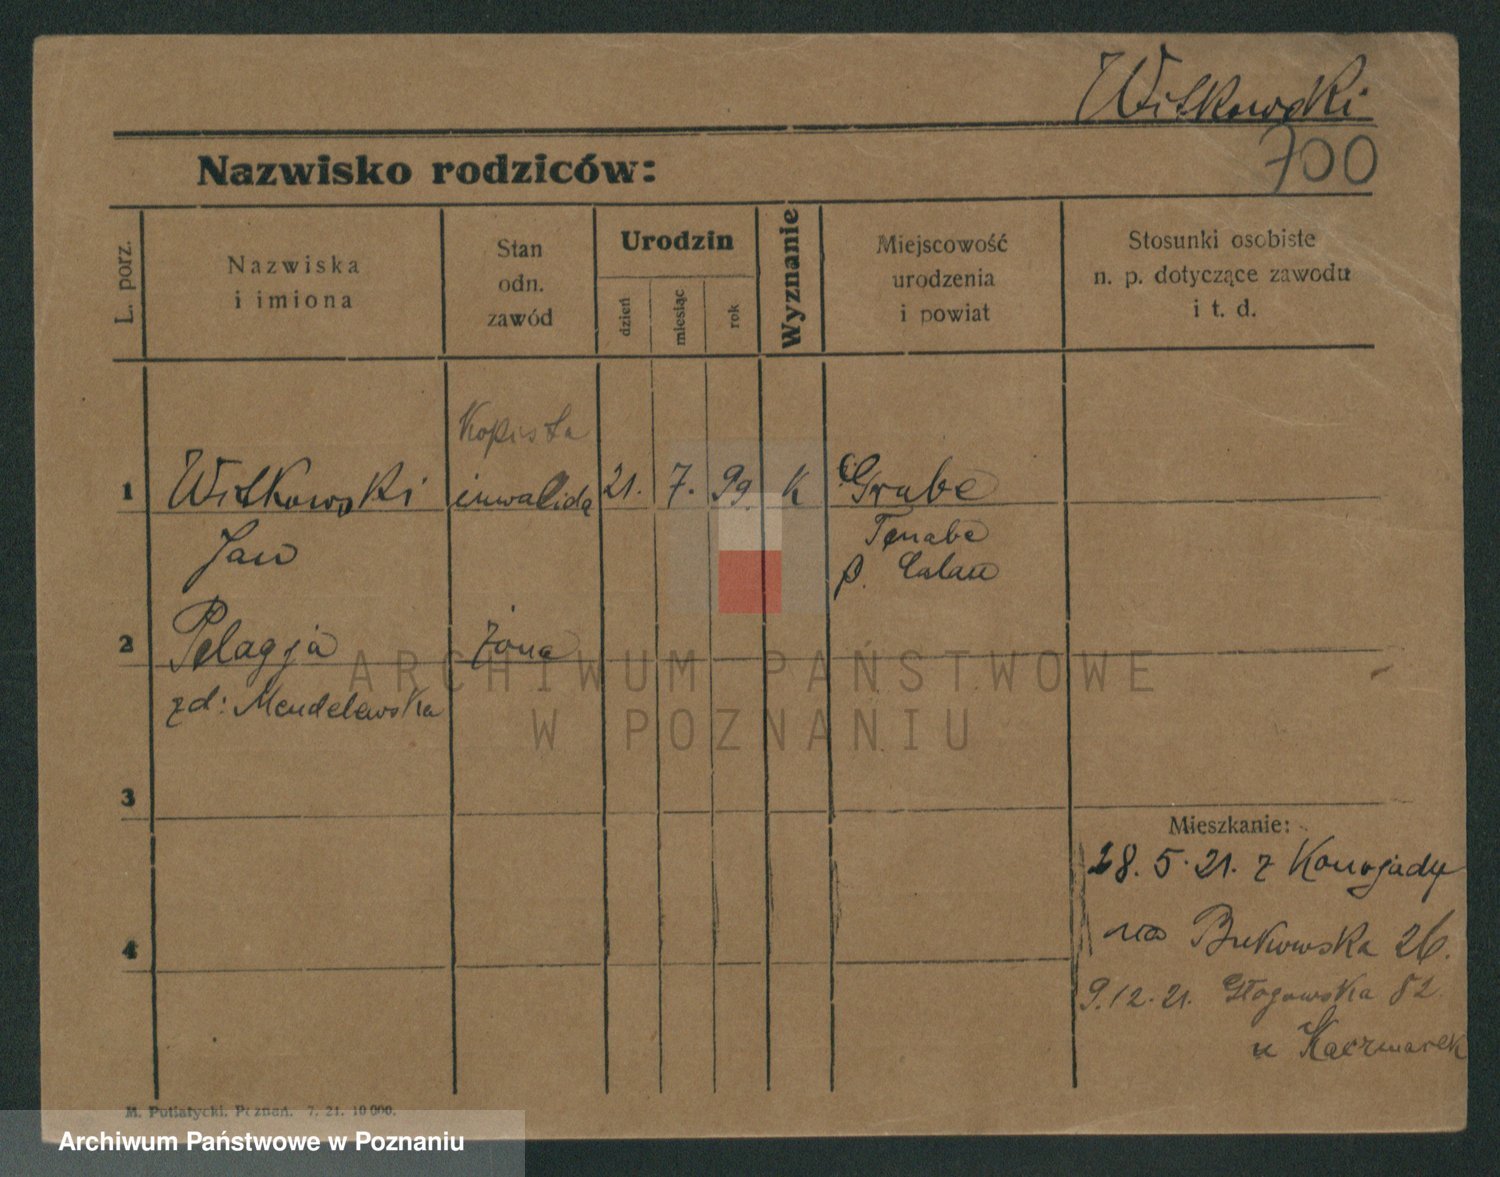 Witkowski
700
Nazwisko rodziców:
L. porz.
Nazwiska
i imiona
Stan
odn.
zawód
Urodzin
dzień
miesiąc
rok
Wyznanie
Miejscowość
urodzenia
i powiat
Stosunki osobiste
n. p. dotyczące zawodu
i t. d.
Kopista
1 Witkowski inwalida 21. 7. 99. k Grabe
Jan
p. Calau
2 Pelagja żona
zd: Mendelewska
3
4
Mieszkanie:
28. 5. 21. z Konojady
na Bukowska 26.
9. 12. 21. Głogowska 82
u Kaczmarek
M. Putiatycki. Poznań. 7. 21. 10 000.
ARCHIWUM PAŃSTWOWE
W POZNANIU
Archiwum Państwowe w Poznaniu